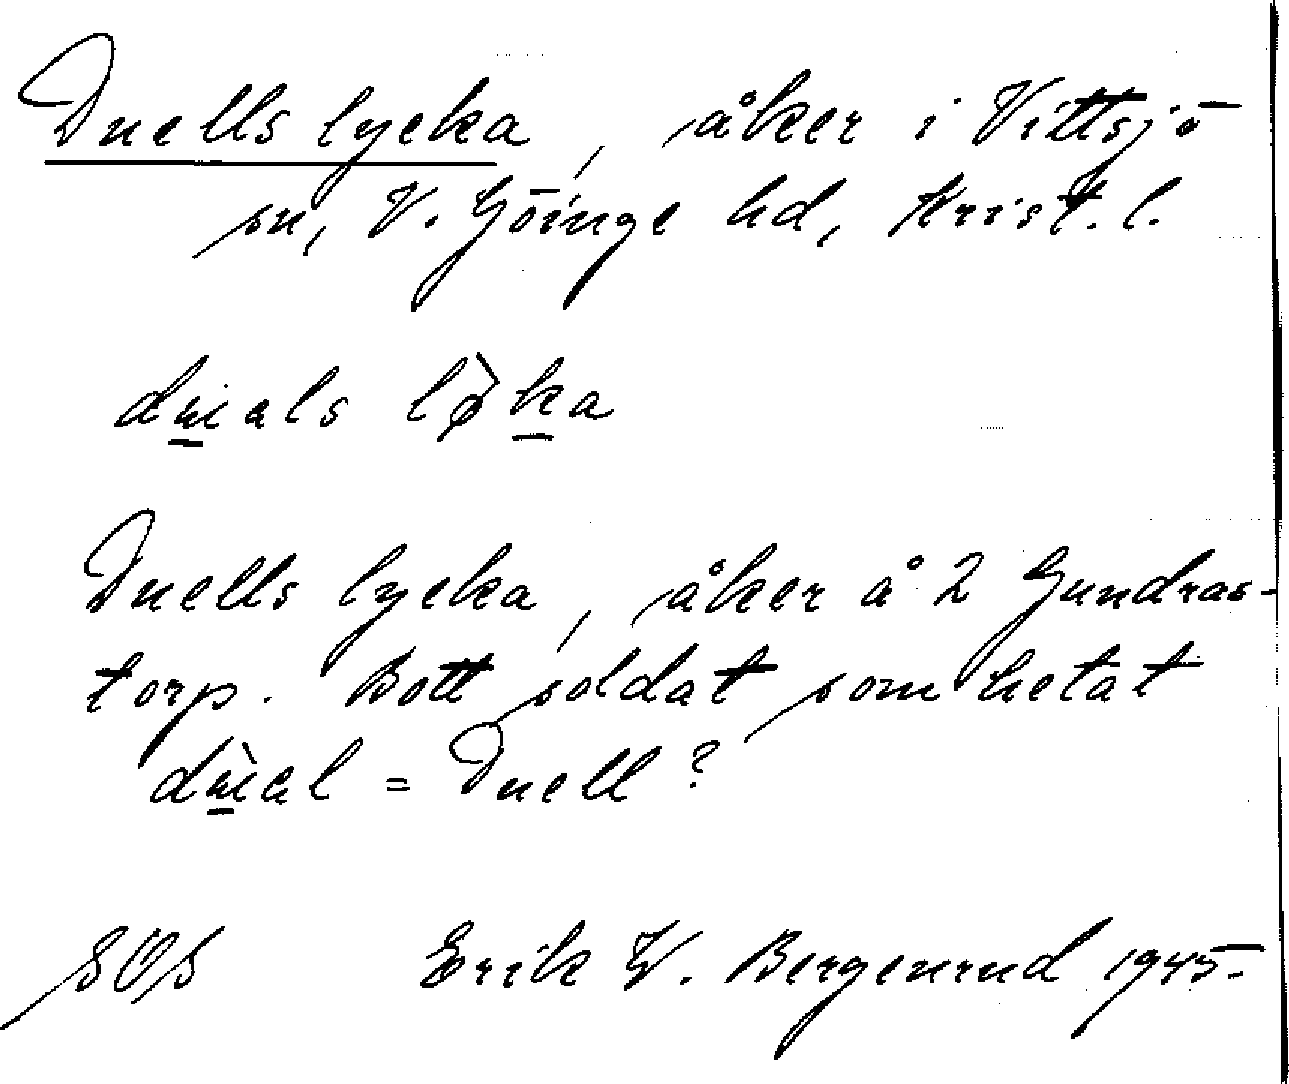 Duells lycka, åker i Vittsjö
sn, V. Göinge hd, Krist. l.
duals lø̀ka
Duells lycka, åker å 2 Gundras-
torp. Bott soldat som hetat
= Duell?
SOS Erik W. Bergenrud 1945.